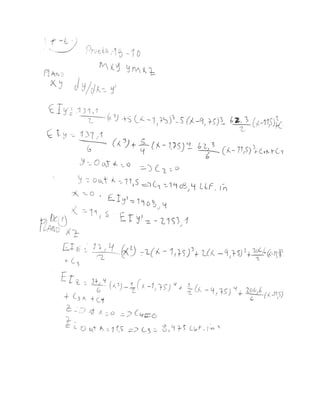 Prueba 18-10
mxy ymxz
PLANO
xy dy/dx = y'
EIy' = 131,1/2 (x²) +5(x-1,75)³-5(x-9,75)³- 62,3/2 (x-11,5)²+C
EIy = 131,1/6 (x³) + 5/4 (x-1,75)⁴ 62,3/6 (x-11,5)³+C₁x+C₂
y=0 at x=0 => C₂=0
y=0 at x=11,5 => C₁=1408,4 Lbf.in
x=0: EIy'=1408,4
x=11,5 EIy'=-2153,1
PLANO xz
EIz = 17,4/2 (x²) -2(x-1,75)³+2(x-9,75)³+
+C₃
EIz = 17,4/6 (x³)-1/2(x-1,75)⁴+ 1/2(x-9,75)⁴+ 206,6/6 (x-11,5)
+C₃x+C₄
z=0 at x=0 => C₄=0
z=0 at x=11,5 => C₃= 8,475 Lbf.in²